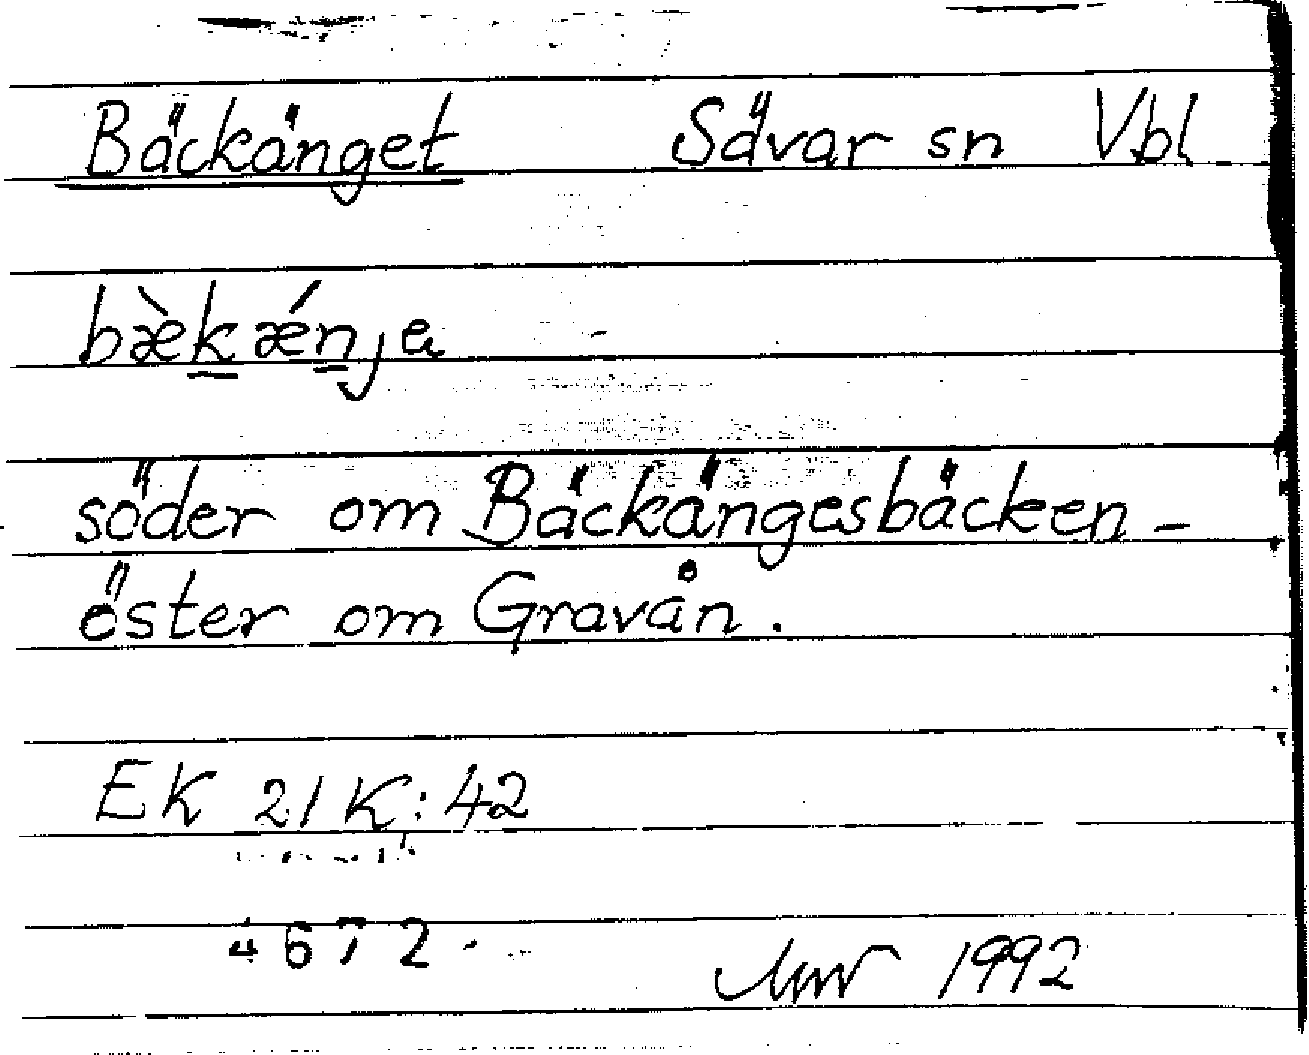 Bäckänget Sävar sn Vbl
bæ̀kǽnja
söder om Bäckängesbäcken -
öster om Gravån.
EK 21K:42
4672
1992